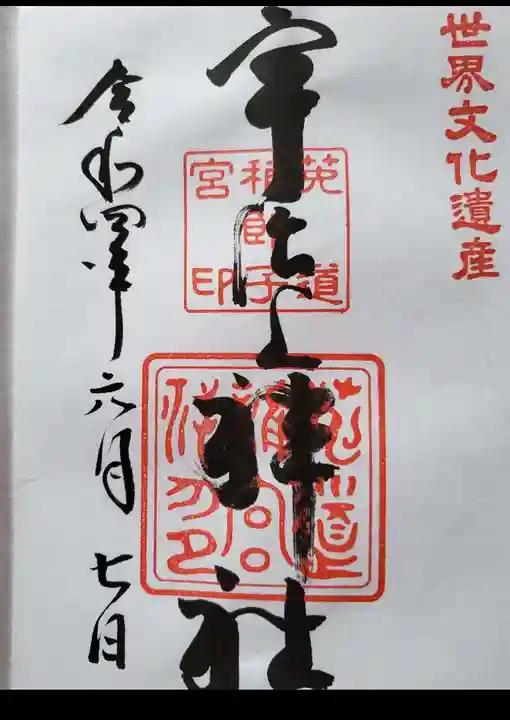 世界文化遺産
宇治上神社
菟道
稚郎子
宮印
令和四年六月七日